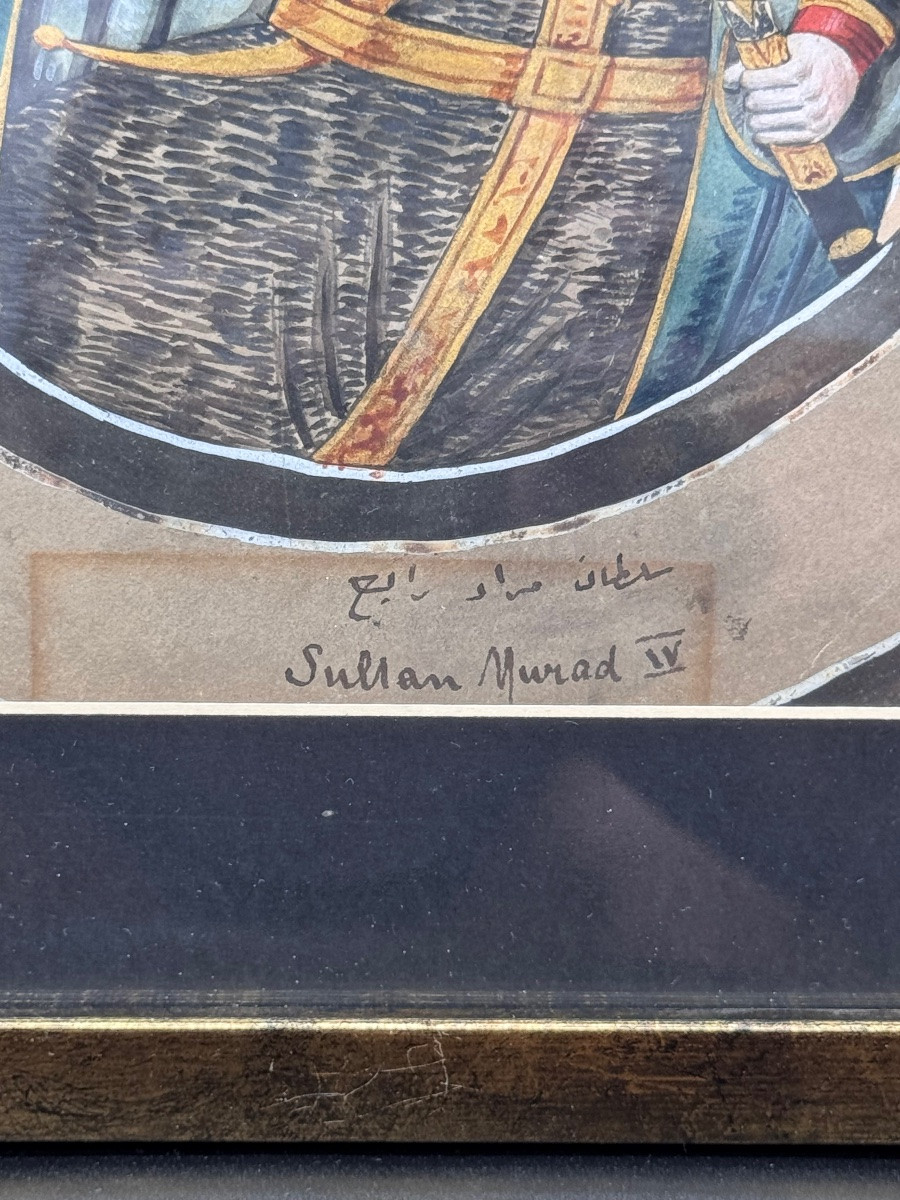 سلطان مراد رابع
Sultan Murad IV